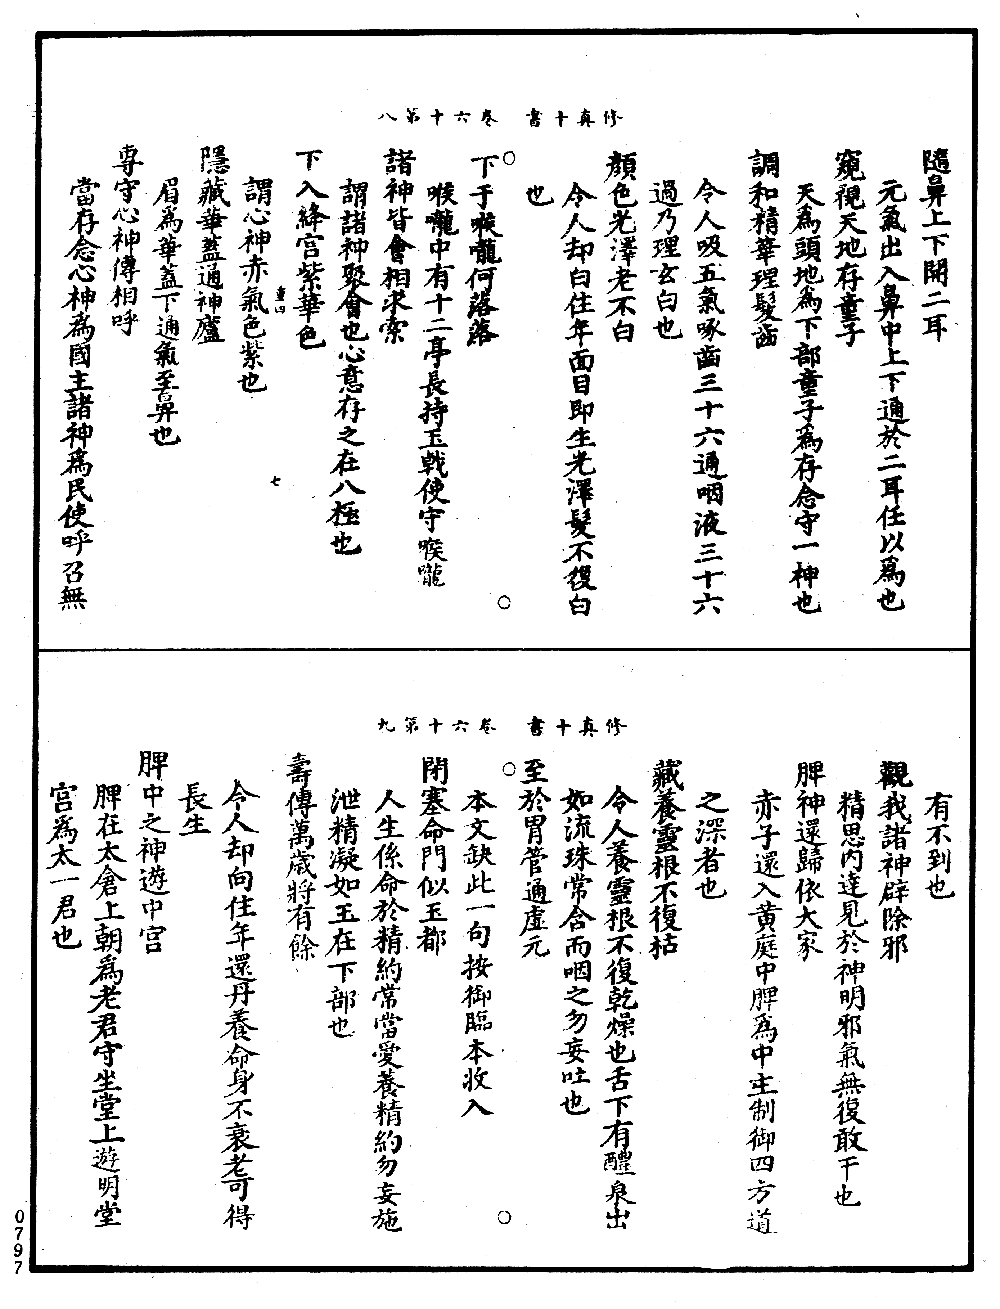 修真十書　卷六十第八
隨鼻上下開二耳
元氣出入鼻中上下通於二耳任以爲也
窺視天地存童子
天爲頭地爲下部童子爲存念守一神也
調和精華理髮齒
令人吸五氣啄齒三十六通咽液三十六
過乃理玄白也
顏色光澤老不白
令人却白住年面目即生光澤髮不復白
也
下于喉嚨何落落
喉嚨中有十二亭長持玉戟使守喉嚨
諸神皆會相求索
謂諸神聚會也心意存之在八極也
下入絳宮紫華色
重四　七
謂心神赤氣色紫也
隱藏華蓋通神廬
眉爲華蓋下通氣至鼻也
專守心神傳相呼
當存念心神爲國主諸神爲民使呼召無
修真十書　卷六十第九
有不到也
觀我諸神辟除邪
精思內達見於神明邪氣無復敢干也
脾神還歸依大家
赤子還入黄庭中脾爲中主制御四方道
之深者也
藏養靈根不復枯
令人養靈根不復乾燥也舌下有醴泉出
如流珠常含而咽之勿妄吐也
至於胃管通虛元
本文缺此一句按御臨本收入
閉塞命門似玉都
人生係命於精約常當愛養精約勿妄施
泄精凝如玉在下部也
壽傳萬歲將有餘
令人却向住年還丹養命身不衰老可得
長生
脾中之神遊中宮
脾在太倉上朝爲老君守坐堂上遊明堂
宮爲太一君也
0797